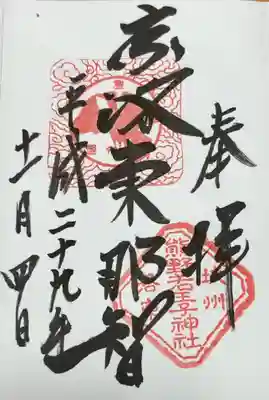 奉拝
京洛東那智
平成二十九年
十一月四日
城州
熊野若王子神社